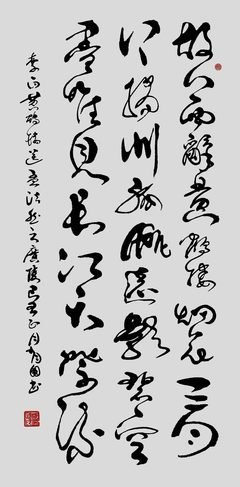 故人西辭黃鶴樓烟花三月
下揚州孤帆遠影碧空
盡唯見長江天際流
李白黃鶴樓送孟浩然之廣陵月国书